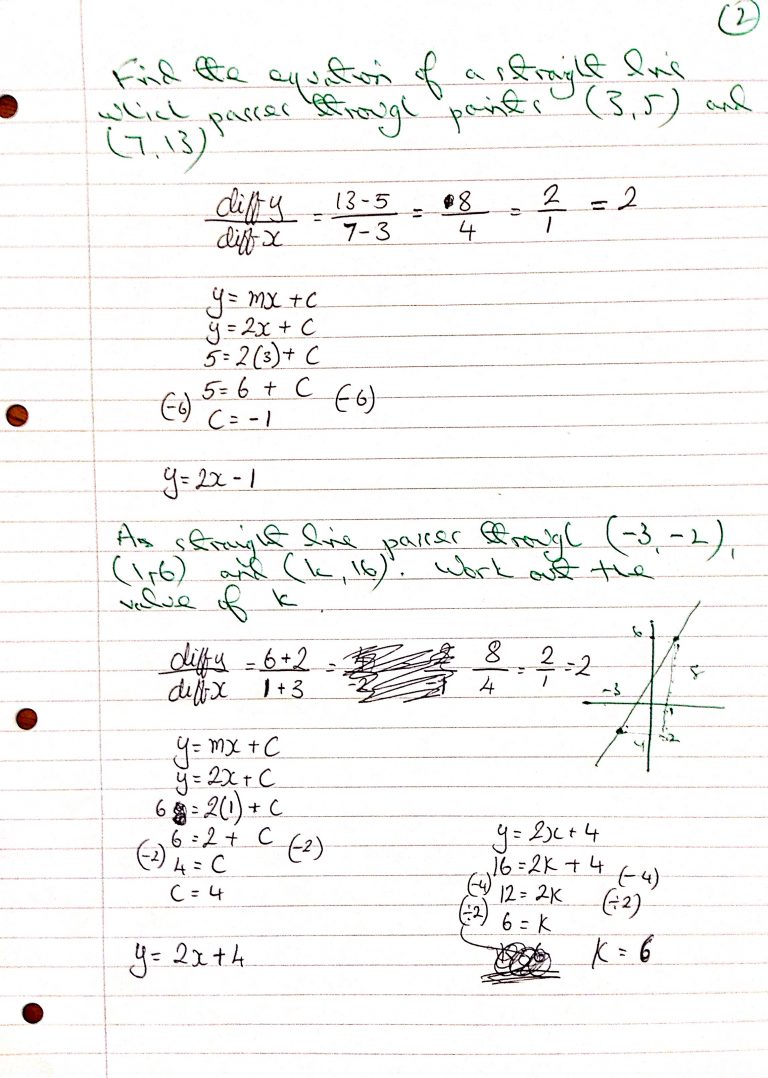 (2)
Find the equation of a straight line
which passes through points (3,5) and
(7,13)
diff y / diff x = 13-5 / 7-3 = 8 / 4 = 2 / 1 = 2
y = mx + C
y = 2x + C
5 = 2(3) + C
(-6) 5 = 6 + C (-6)
C = -1
y = 2x - 1
A straight line passes through (-3,-2),
(1,6) and (k,16). Work out the
value of k.
diff y / diff x = 6+2 / 1+3 = 8 / 4 = 2 / 1 = 2
6
-3
1
8
-2
4
y = mx + C
y = 2x + C
6 = 2(1) + C
(-2) 6 = 2 + C (-2)
4 = C
C = 4
y = 2x + 4
y = 2x + 4
16 = 2k + 4
(-4) 12 = 2k (-4)
(÷2) 6 = k (÷2)
k = 6